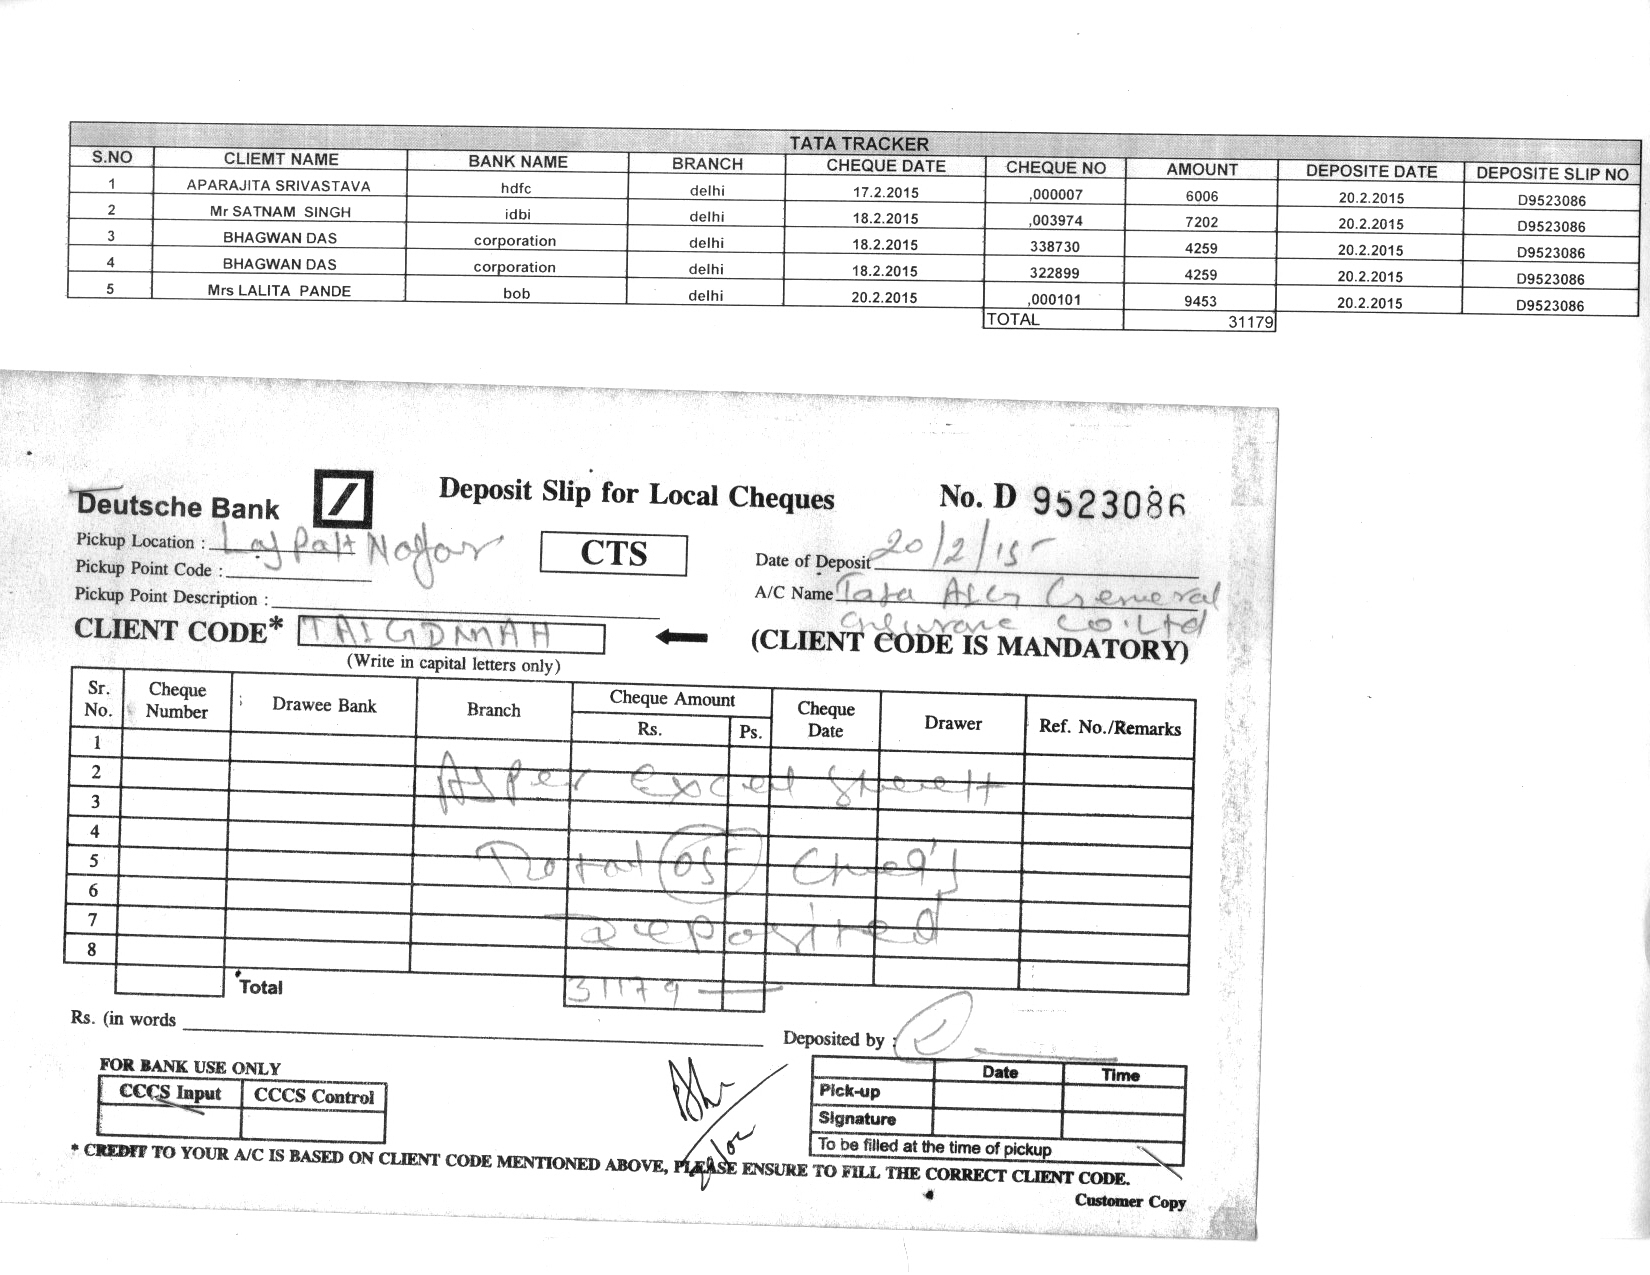 TATA TRACKER
S.NO CLIEMT NAME BANK NAME BRANCH CHEQUE DATE CHEQUE NO AMOUNT DEPOSITE DATE DEPOSITE SLIP NO
1 APARAJITA SRIVASTAVA hdfc delhi 17.2.2015 ,000007 6006 20.2.2015 D9523086
2 Mr SATNAM SINGH idbi delhi 18.2.2015 ,003974 7202 20.2.2015 D9523086
3 BHAGWAN DAS corporation delhi 18.2.2015 338730 4259 20.2.2015 D9523086
4 BHAGWAN DAS corporation delhi 18.2.2015 322899 4259 20.2.2015 D9523086
5 Mrs LALITA PANDE bob delhi 20.2.2015 ,000101 9453 20.2.2015 D9523086
TOTAL 31179
Deutsche Bank Deposit Slip for Local Cheques No. D 9523086
Pickup Location : Lajpat Nagar CTS Date of Deposit 20/2/15
Pickup Point Code :
Pickup Point Description : A/C Name Tata AIG General
Insurance Co. Ltd
CLIENT CODE* TAIGDMAH (CLIENT CODE IS MANDATORY)
(Write in capital letters only)
Sr. No. Cheque Number Drawee Bank Branch Cheque Amount Rs. Ps. Cheque Date Drawer Ref. No./Remarks
1
2 As Per Excel Sheett
3
4
5 Total 05 Cheq's
6
7 Deposited
8
*Total 31179
Rs. (in words
Deposited by :
FOR BANK USE ONLY
CCCS Input CCCS Control
Date Time
Pick-up
Signature
To be filled at the time of pickup
* CREDIT TO YOUR A/C IS BASED ON CLIENT CODE MENTIONED ABOVE, PLEASE ENSURE TO FILL THE CORRECT CLIENT CODE.
Customer Copy